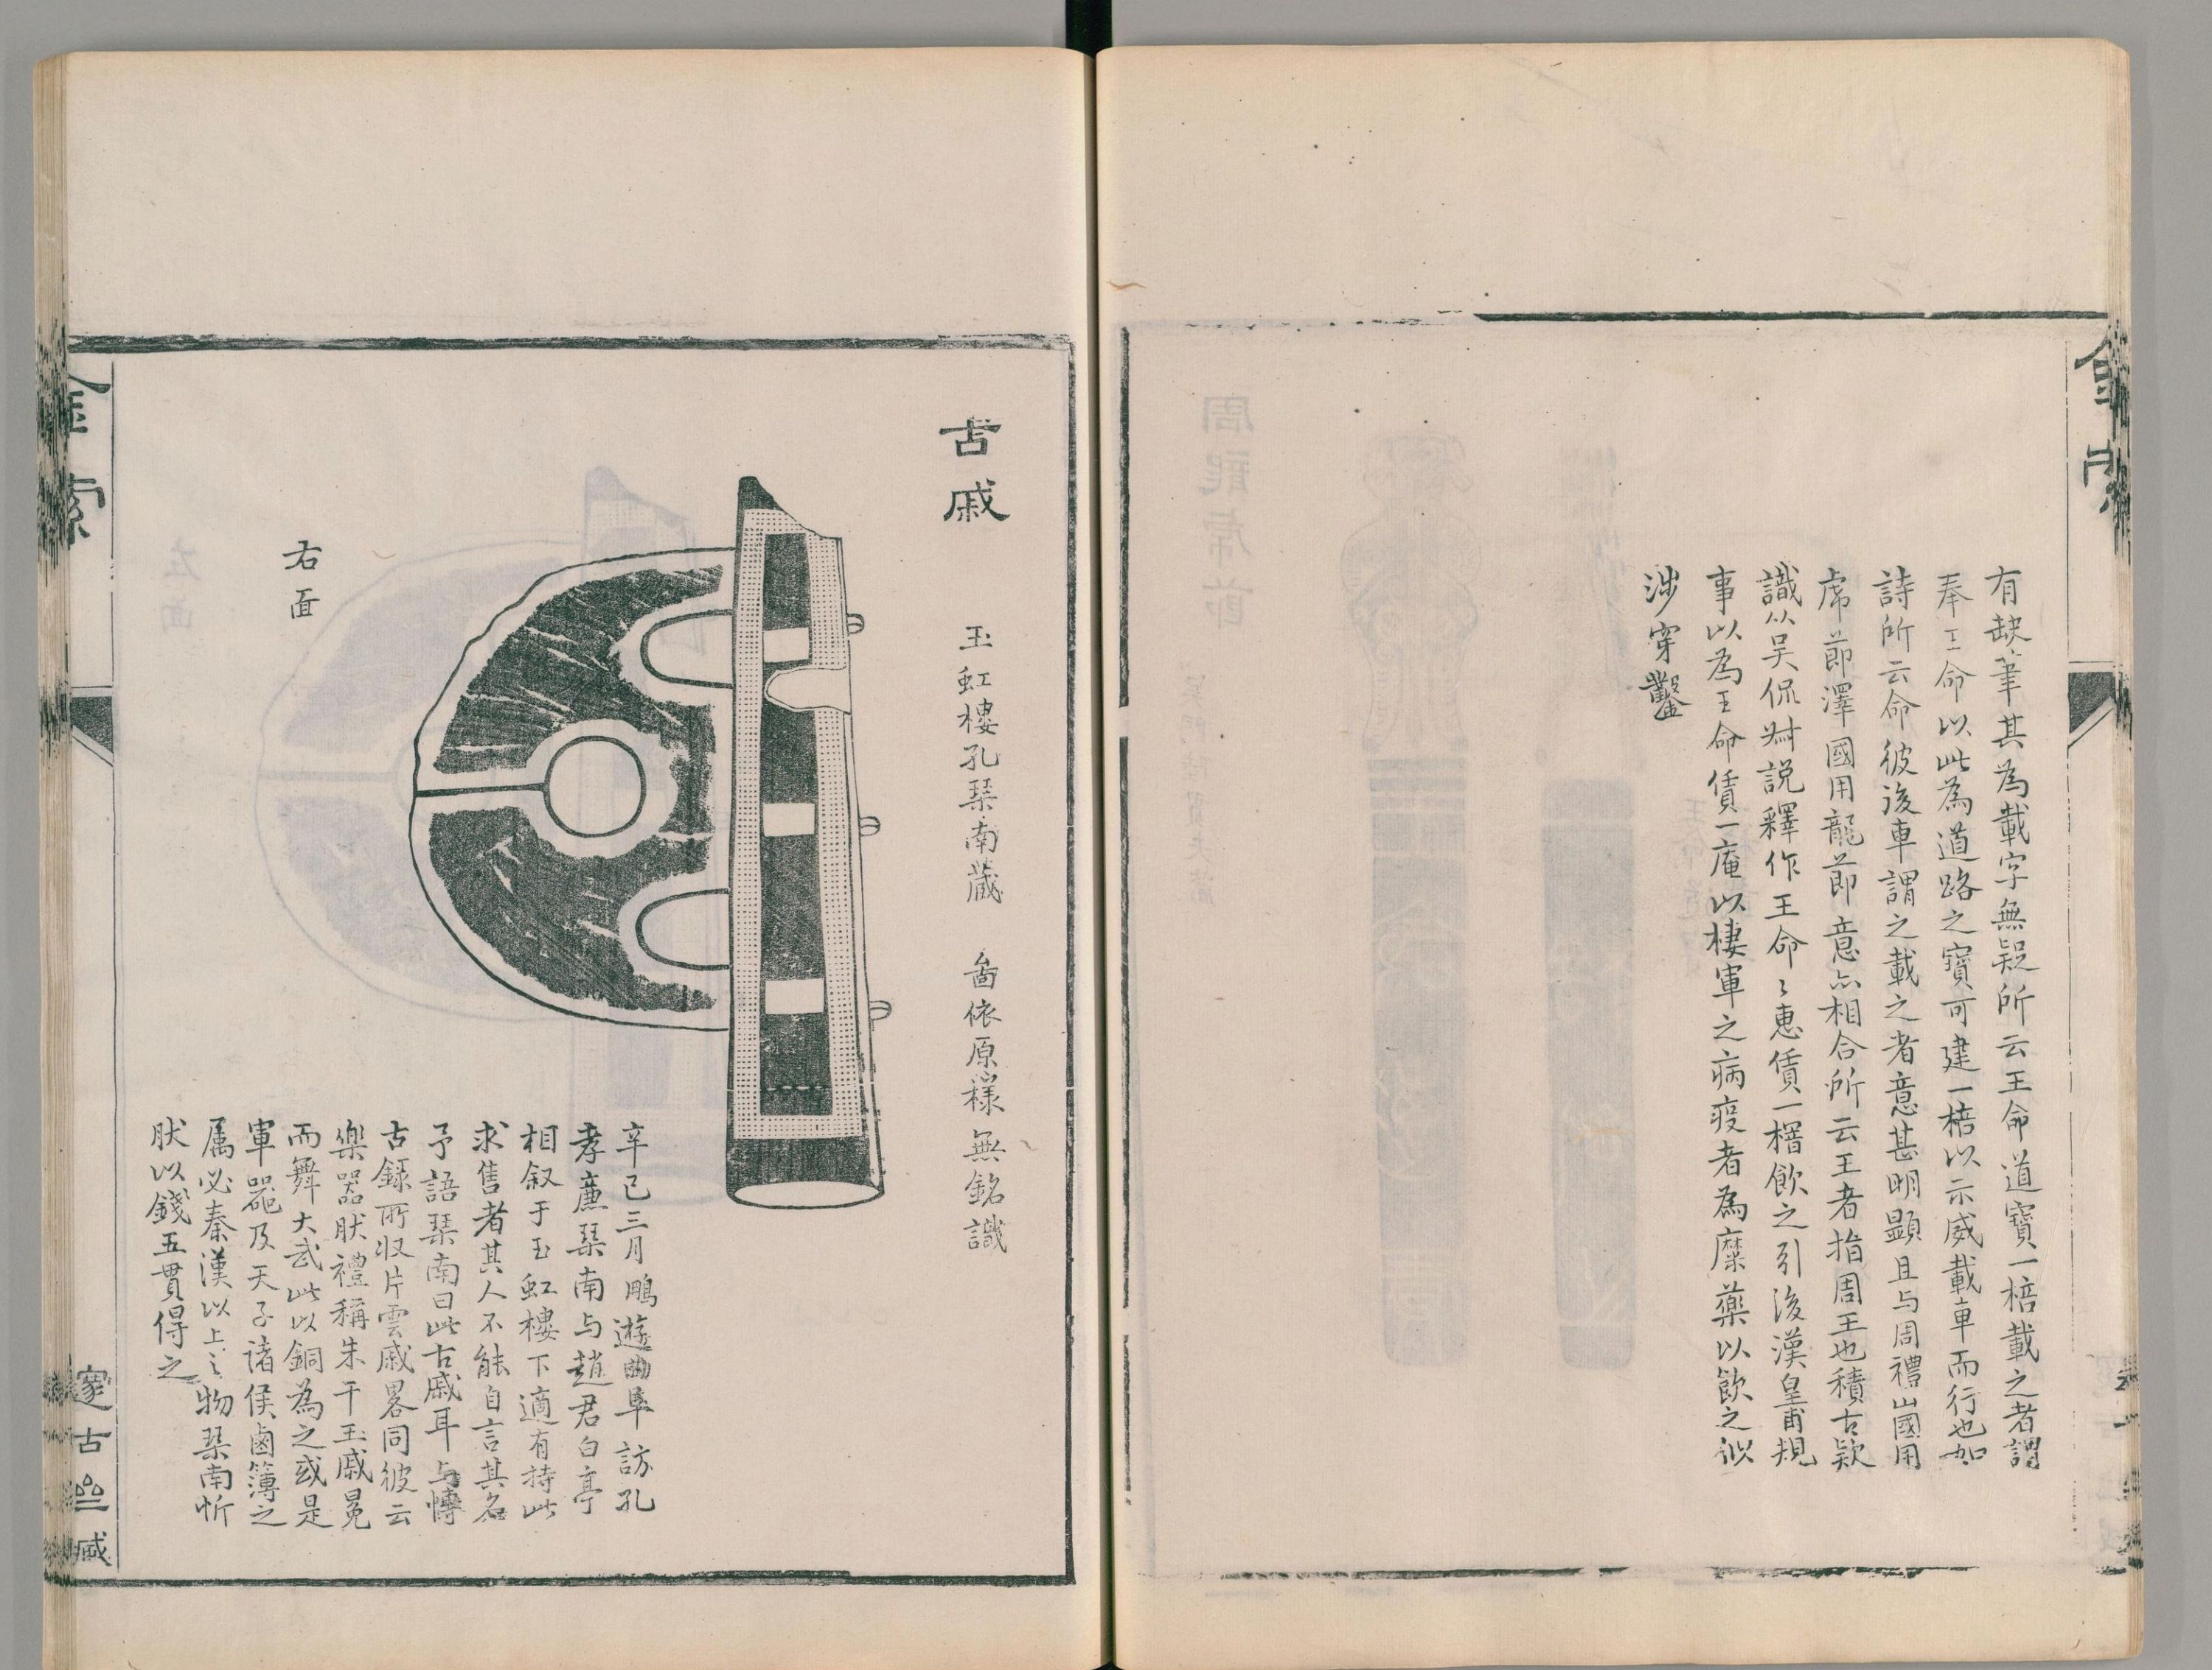 有缺筆其為載字無疑所云王命道寶一棓載之者謂
奉王命以此為道路之寶可建一棓以示威載車而行也如
詩所云命彼後車謂之載之者意甚明顯且与周禮山國用
虎節澤國用龍節意亦相合所云王者指周王也積古款
識從吳侃尗說釋作王命〻惠賃一榰飲之引後漢皇甫規
事以為王命賃一庵以棲軍之病疫者為糜藥以飲之似
涉穿鑿
古戚
玉虹樓孔琹南藏 啚依原樣 無銘識
右面
辛巳三月鵰遊曲阜訪孔
孝廉琹南与趙君白亭
相叙于玉虹樓下適有持此
求售者其人不能自言其名
予語琹南曰此古戚耳与愽
古錄所収片雲戚畧同彼云
樂器肰禮稱朱干玉戚冕
而舞大武此以銅為之或是
軍器及天子諸侯鹵簿之
属必秦漢以上之物琹南忻
肰以錢五貫得之
金索
邃古
金索